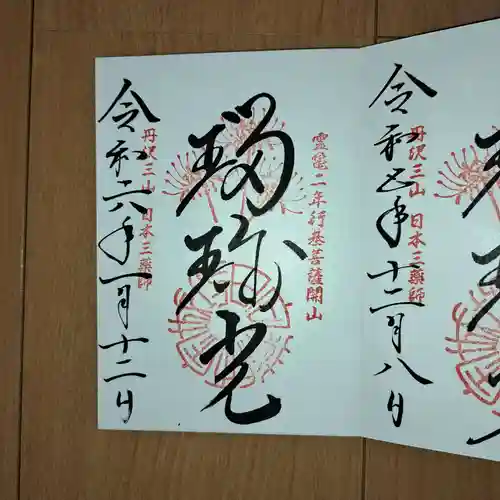 霊亀二年行基菩薩開山
瑠璃光
丹沢三山 日本三薬師
令和六年一月十二日
丹沢三山 日本三薬師
令和五年十二月八日